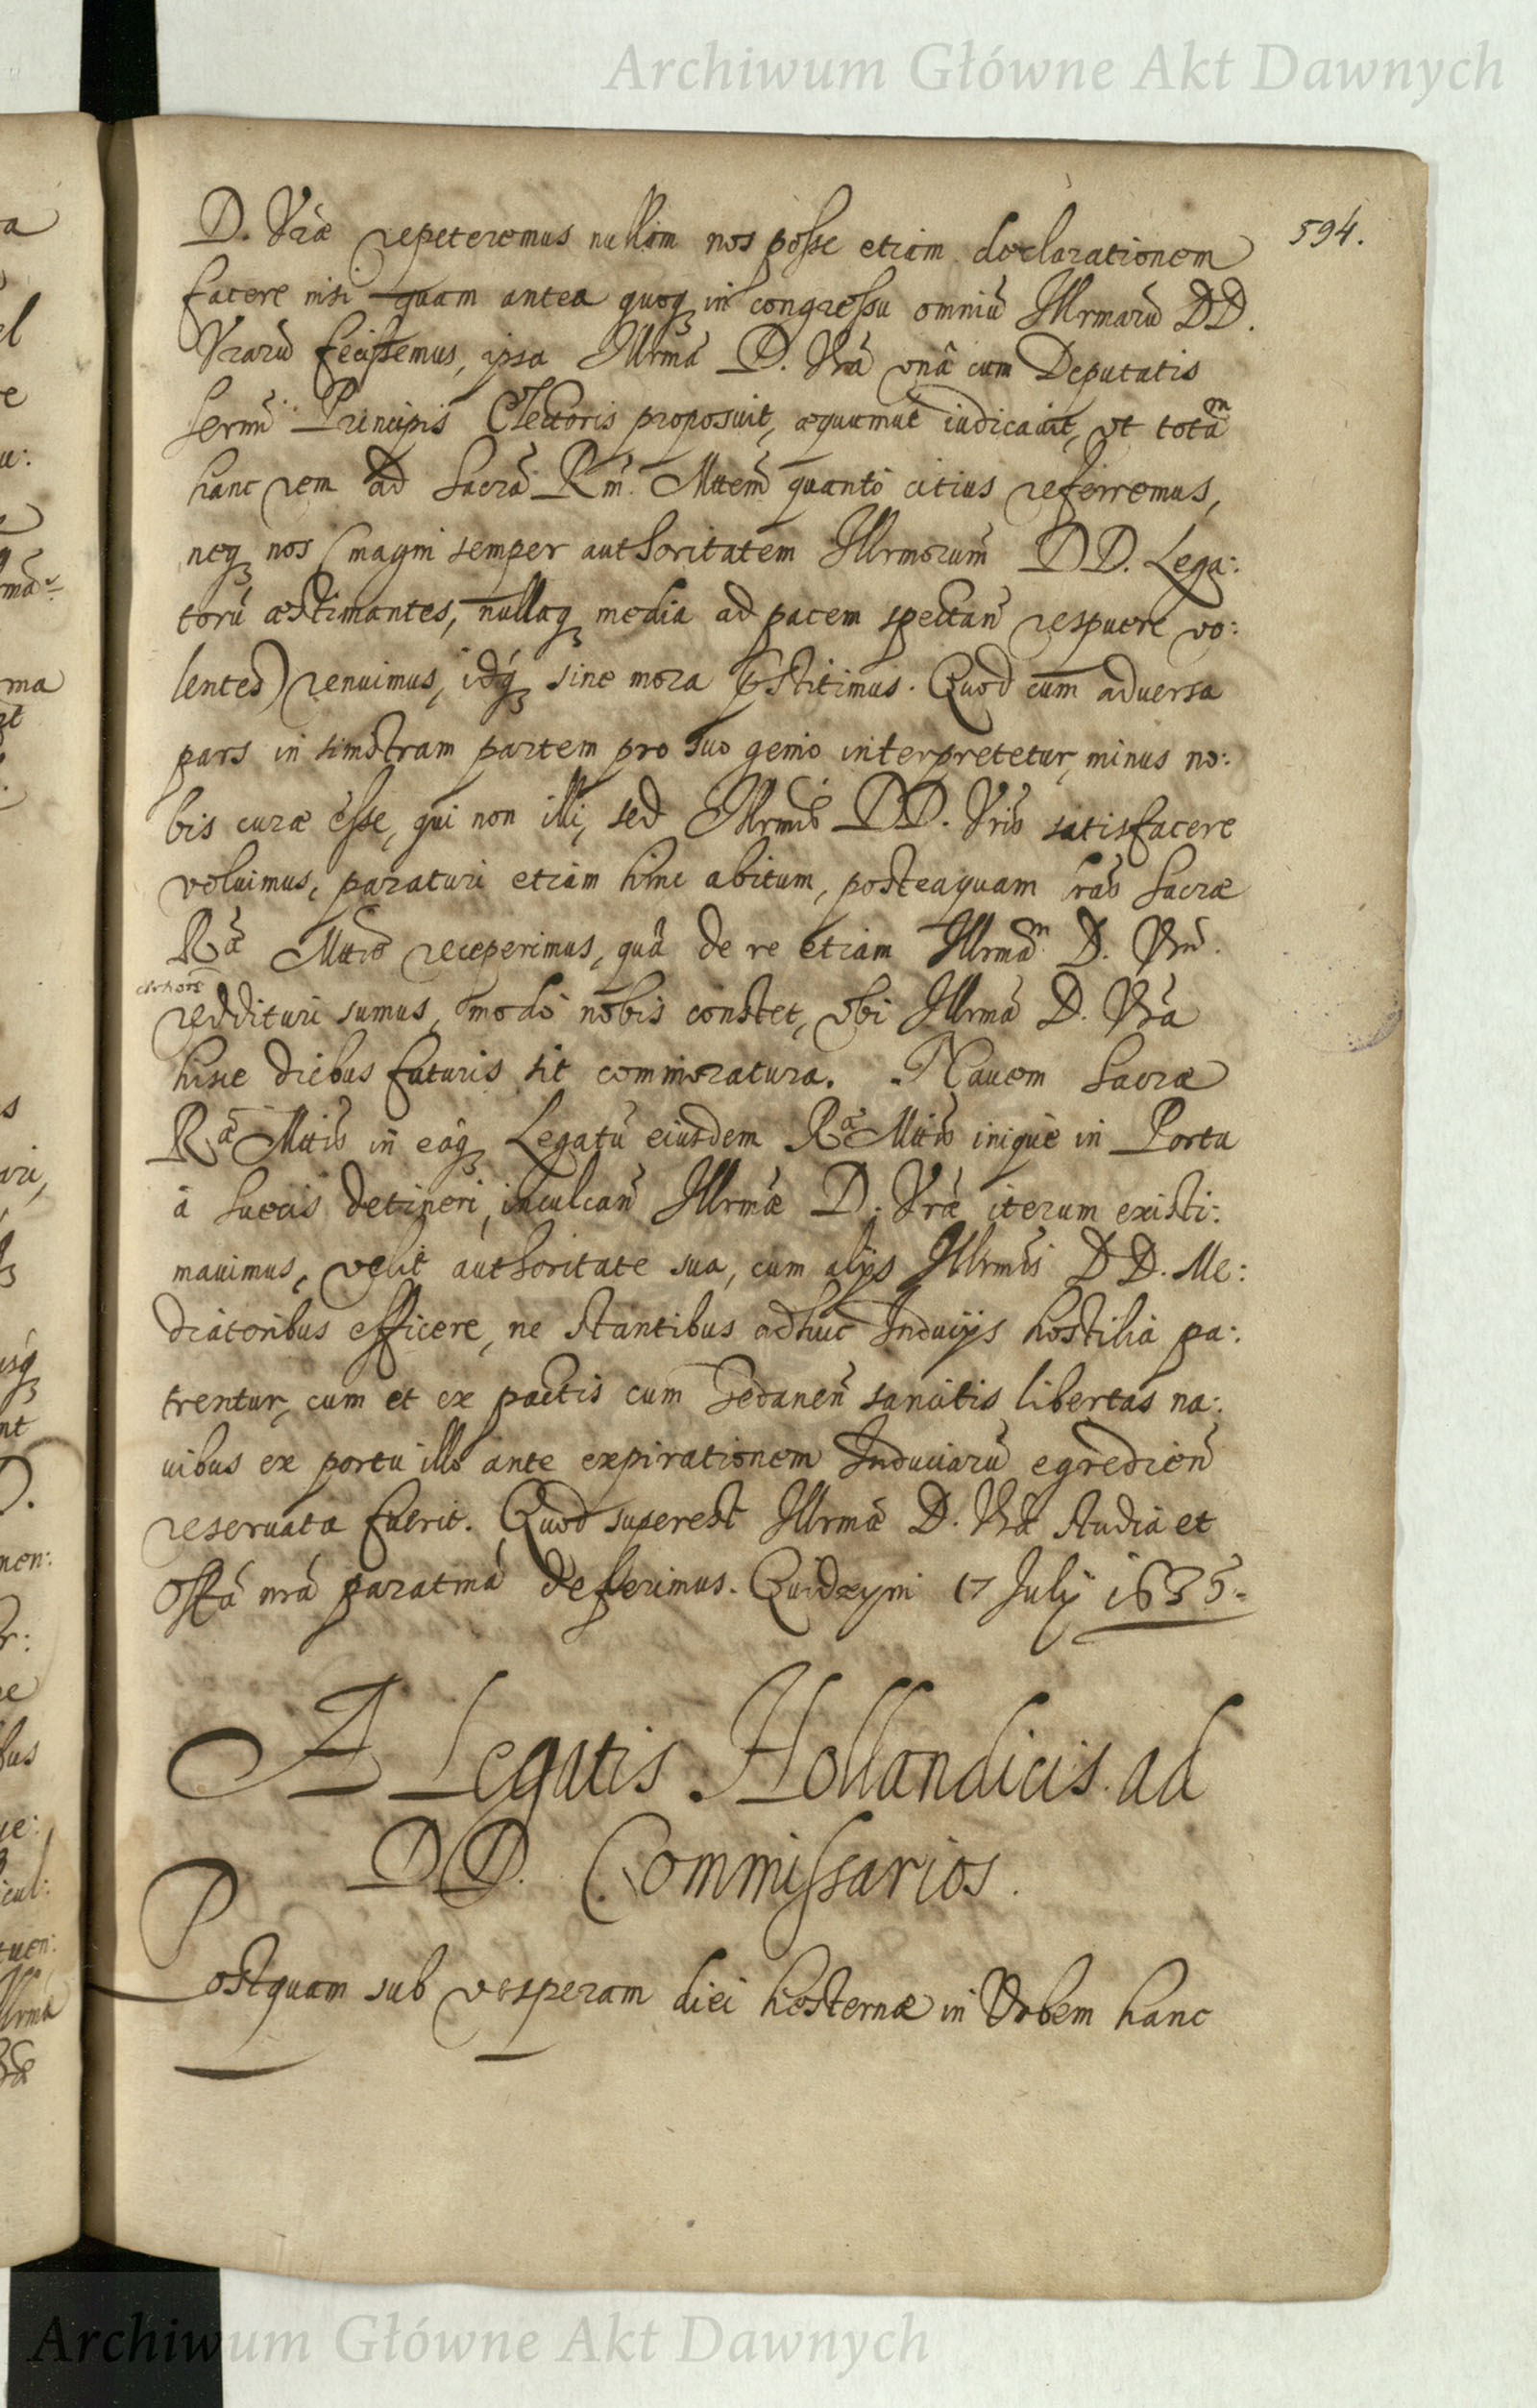 Archiwum Główne Akt Dawnych
594.
D. Vræ repeteremus nullam nos posse etiam declarationem
facere nisi quam antea quoq in congressu omniū Illrmarū DD.
Vrarū fecissemus, ipsa Illrma D. Vra unâ cum Deputatis
Sermi Principis Electoris proposuit, æquumut iudicauit, vt totam
hanc rem ad Sacrā Rm. Mttem quanto citius referremus,
neq nos (magni semper authoritatem Illrmorum DD. Lega:
torū æstimantes, nullaq media ad pacem spectan respuere vo:
lentes) renuimus, idq sine mora prstitimus. Quod cum aduersa
pars in sinistram partem pro suo genio interpretetur, minus no:
bis curæ esse, qui non illi, sed Illrmis DD. Vris satisfacere
voluimus, paraturi etiam hinc abitum, posteaquam lras Sacræ
Ra Mttis receperimus, quâ de re etiam Illrmam D. Vrm.
reddituri sumus, modo nobis constet, vbi Illrma D. Vra
hisce diebus futuris sit commoratura. Nauem Sacræ
Ra Mttis in eaq Legatū eiusdem Ra Mttis inique in Portu
à Suecis detineri, inculcan Illrmæ D. Vræ iterum existi:
mauimus, velit authoritate sua, cum alijs Illrmis DD. Me:
diatoribus efficere, ne stantibus adhuc Inducijs hostilia pa:
trentur, cum et ex pactis cum Gedanen sancitis libertas na:
uibus ex portu illo ante expirationem Induciarū egredien
reseruata fuerit. Quod superest Illrmæ D. Vræ studia et
offa nra paratma defferimus. Quidzyni 17 July 1635.
A Legatis Hollandicis ad
DD. Commissarios.
Postquam sub vesperam diei hesternæ in Vrbem hanc
Archiwum Główne Akt Dawnych